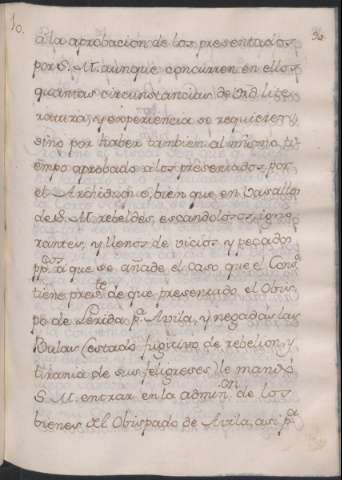 10.
à la aprobacion de los presentados
por S. M. aunque concurren en ellos
quantas circunstancias de Vrd. lite
ratura, y experiencia se requieren,
sino por haber tambien al mismo ti
empo aprobado a los presentados por
el Archiduque, bien que en Vasallos
de S. M. rebeldes, escandolosos, igno
rantes, y llenos de vicios y pecados
pp.cos à que se añade el caso que el Cons.o
tiene pres.te de que presentado el Obis
po de Lerida p.a Avila, y negadas las
Bulas (estado fugitivo de rebelion, y
tirania de sus feligreses) le mandó
S. M. entrar en la admin.on de los
bienes del Obispado de Avila, asi p.a